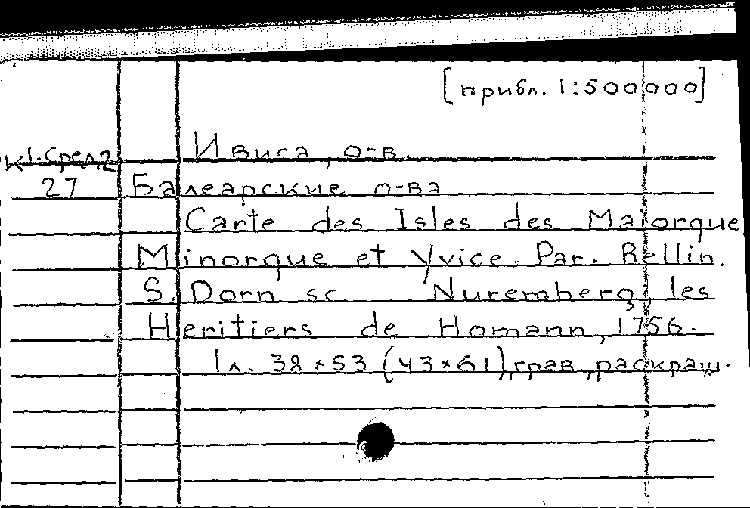 [прибл. 1:500000]
Ивиса, о-в.
К1-Сред.2
27 Балеарские о-ва
Carte des Isles des Maiorque
Minorque et Yvice. Par. Bellin.
S. Dorn sc. Nuremberg, les
Heritiers de Homann, 1756.
1 л. 38×53 (43×61), грав., раскраш.